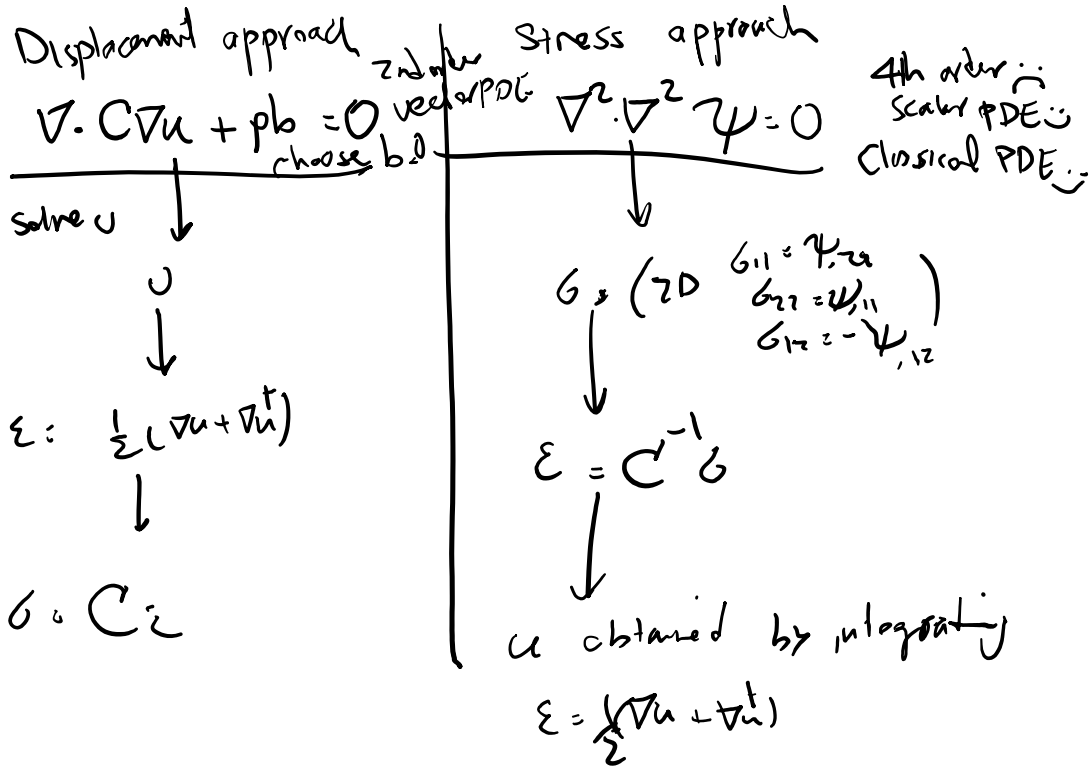 Displacement approach
2nd order
vector PDE
∇· C∇u + ρb = 0
choose b=0
solve u
u
ε = ½(∇u + ∇uᵗ)
σ = Cε
Stress approach
∇²·∇² ψ = 0
4th order :(
Scalar PDE :)
Classical PDE :)
σ = (2D σ11 = ψ,22
σ22 = ψ,11
σ12 = -ψ,12)
ε = C⁻¹σ
u obtained by integrating
ε = ½(∇u + ∇uᵗ)